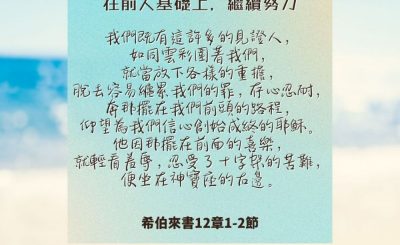 在前人基礎上，繼續努力
我們既有這許多的見證人，
如同雲彩圍著我們，
就當放下各樣的重擔，
脫去容易纏累我們的罪，存心忍耐，
奔那擺在我們前頭的路程，
仰望為我們信心創始成終的耶穌。
他因那擺在前面的喜樂，
就輕看羞辱，忍受了十字架的苦難，
便坐在神寶座的右邊。
希伯來書12章1-2節